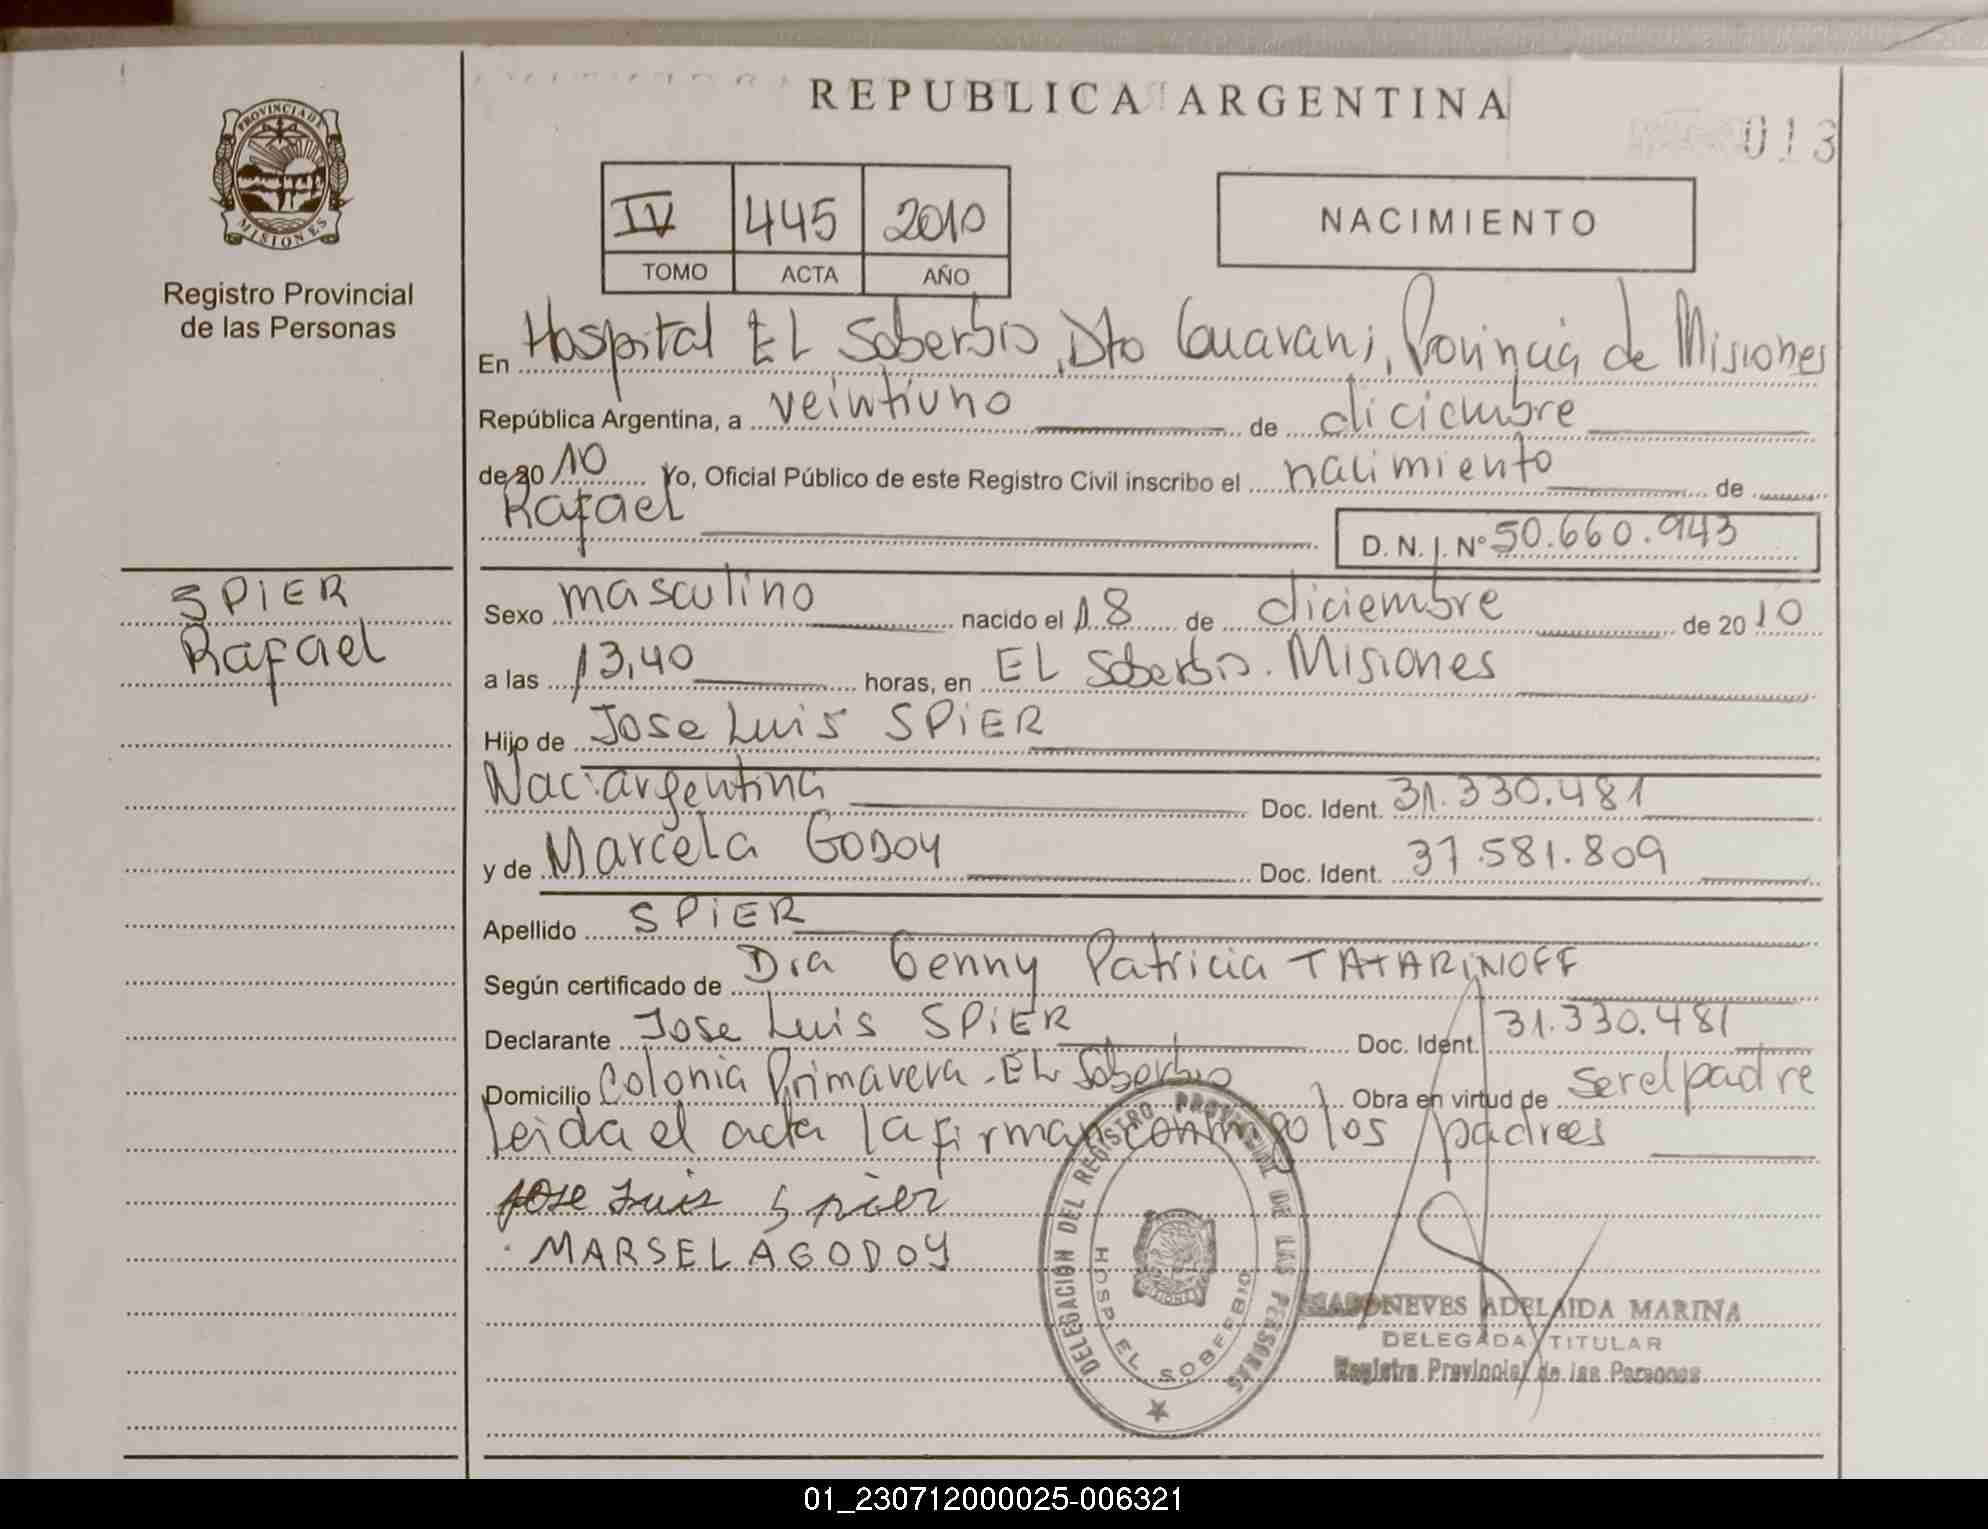 REPUBLICA ARGENTINA
013
PROVINCIA DE MISIONES
Registro Provincial
de las Personas
IV 445 2010
TOMO ACTA AÑO
NACIMIENTO
En Hospital EL Soberbio, Dto Guarani, Provincia de Misiones
República Argentina, a veintiuno de diciembre
de 2010 Yo, Oficial Público de este Registro Civil inscribo el nacimiento de
Rafael
D. N. I. Nº 50.660.943
SPIER
Rafael
Sexo masculino nacido el 18 de diciembre de 2010
a las 13,40 horas, en EL Soberbio. Misiones
Hijo de Jose Luis SPIER
Nac: argentina Doc. Ident. 31.330.481
y de Marcela GODOY Doc. Ident. 37.581.809
Apellido SPIER
Según certificado de Dra Genny Patricia TATARINOFF
Declarante Jose Luis SPIER Doc. Ident. 31.330.481
Domicilio Colonia Primavera - EL Soberbio Obra en virtud de ser el padre
Leida el acta la firman conmigo los padres
Jose Luis Spier
MARSELA GODOY
DELEGACION DEL REGISTRO PROVINCIAL DE LAS PERSONAS
HOSP. EL SOBERBIO
ADELAIDA MARINA
DELEGADA TITULAR
Registro Provincial de las Personas
01_230712000025-006321